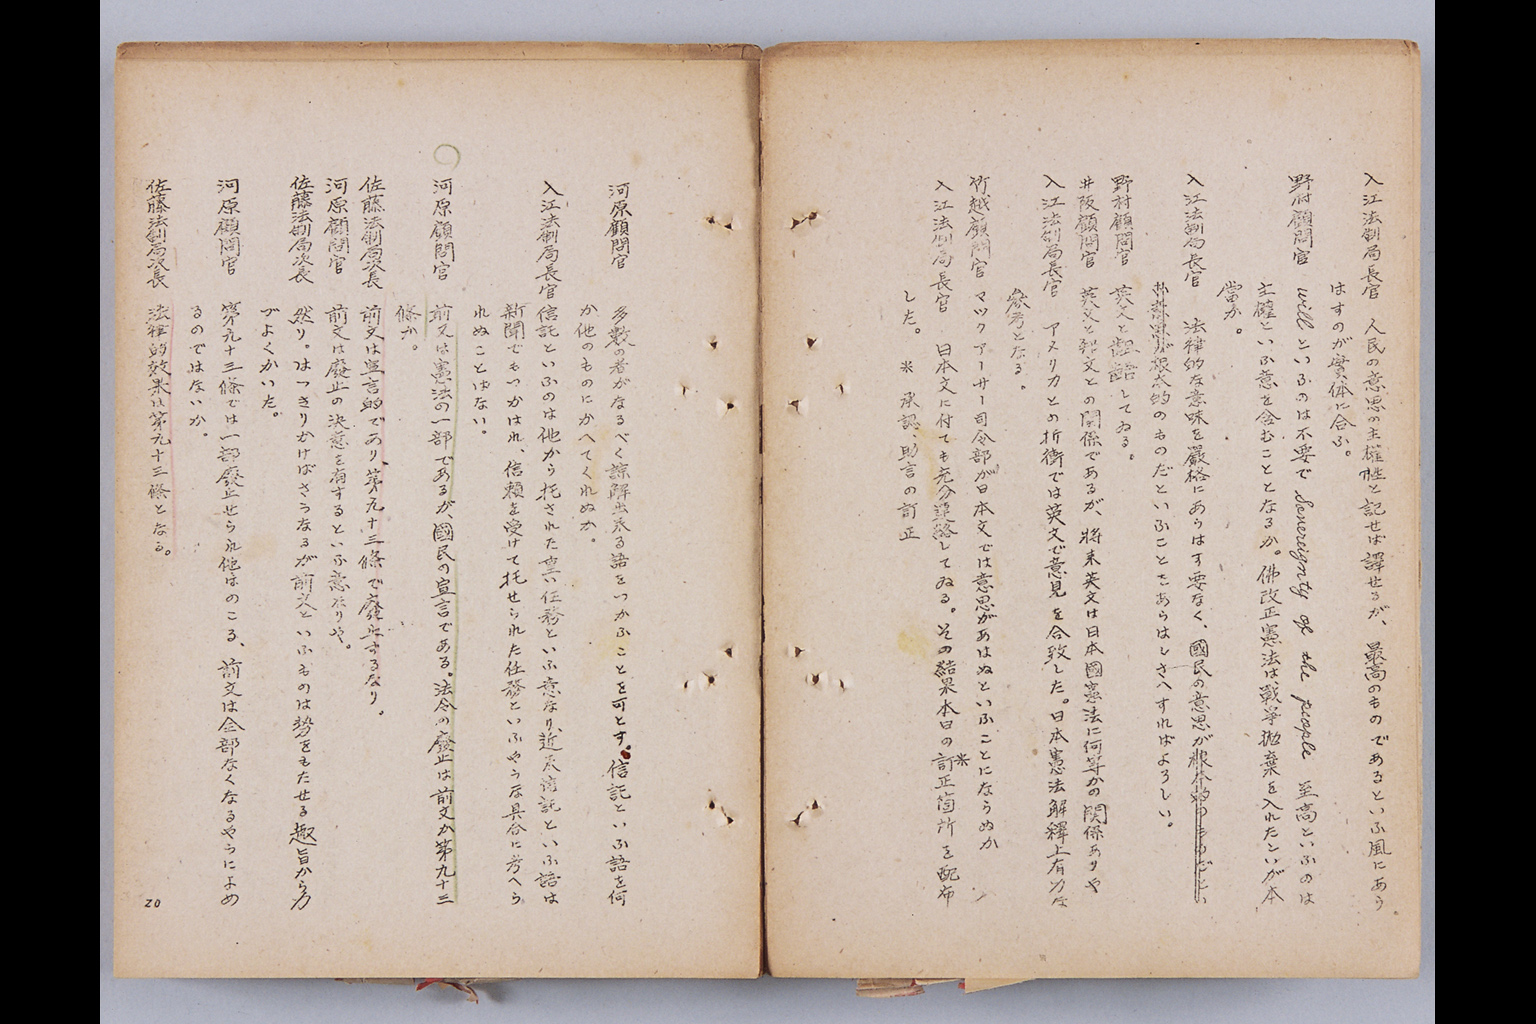 入江法制局長官　人民の意思の主権性と記せば譯せるが、最高のものであるといふ風にあら
はすのが實体に合ふ。
野村顧問官　willといふのは不要でSovereignty of the people 至高といふのは
主權といふ意を含むこととなるか。佛改正憲法は、戰爭抛棄を入れたといが本
當か。
入江法制局長官　法律的な意味を嚴格にあらはす要なく、國民の意思が
根本的のものだといふことをあらはしさへすればよろしい。
野村顧問官　英文と齟齬してゐる。
井阪顧問官　英文と和文との関係であるが、將来英文は日本國憲法に何等かの関係ありや
入江法制局長官　アメリカとの折衝では英文で意見を合致した。日本憲法解釋上有力な
参考となる。
竹越顧問官　マックアーサー司令部が日本文では意思があはぬといふことにならぬか
入江法制局長官　日本文に付ても充分連絡してゐる。その結果本日の訂正箇所＊を配布
した。　＊承認、助言の訂正
河原顧問官　多数の者がなるべく諒解出来る語をつかふことを可とす。信託といふ語を何
か他のものにかへてくれぬか。
入江法制局長官　信託といふのは他から托された重い任務といふ意なり、近衣信託といふ語は
新聞でもつかはれ、信頼を受けて托せられた任務といふやうな具合に考へら
れぬことはない。
河原顧問官　前文は憲法の一部であるが、國民の宣言である。法令の廢止は前文か第九十三
條か。
佐藤法制局次長　前文は宣言的であり、第九十三條で廢止するなり。
河原顧問官　前文は廢止の決意を有するといふ意なりや。
佐藤法制局次長　然り。はっきりかけばさうなるが前文といふものは勢をもたせる趣旨から力
づよくかいた。
河原顧問官　第九十三條では一部廢止せられ他はのこる、前文は全部なくなるやうによめ
るのではないか。
佐藤法制局次長　法律的效果は第九十三條となる。
20